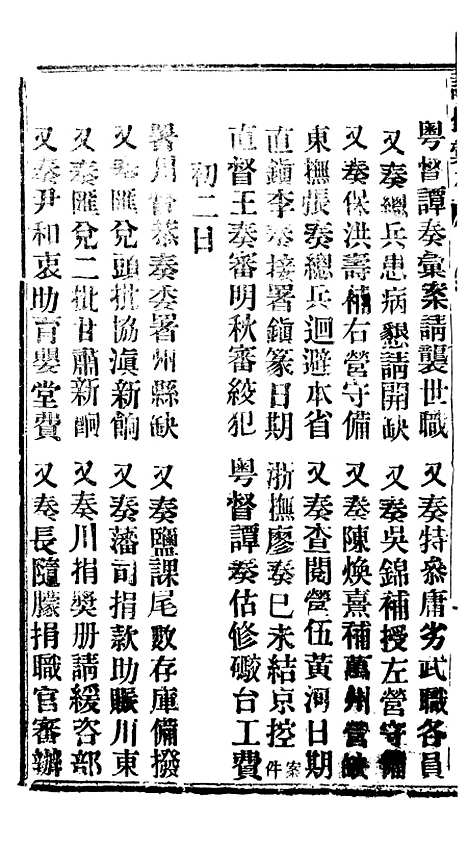 粵督譚奏彙案請襲世職
又奏特叅庸劣武職各員
又奏總兵患病懇請開缺
又奏吳錦補授左營守備
又奏保洪壽補右營守備
又奏陳煥熹補萬州營缺
東撫張奏總兵迴避本省
又奏查閱營伍黃河日期
直鎭李奏接署鎭篆日期
浙撫廖奏已未結京控案件
直督王奏審明秋審絞犯
粵督譚奏估修礮台工費
初二日
署川督恭奏委署州縣缺
又奏鹽課尾數存庫備撥
又奏匯兌頭批協滇新餉
又奏藩司捐款助賑川東
又奏匯兌二批甘肅新餉
又奏川捐獎册請緩咨部
又奏尹和衷助育嬰堂費
又奏長隨朦捐職官審辦